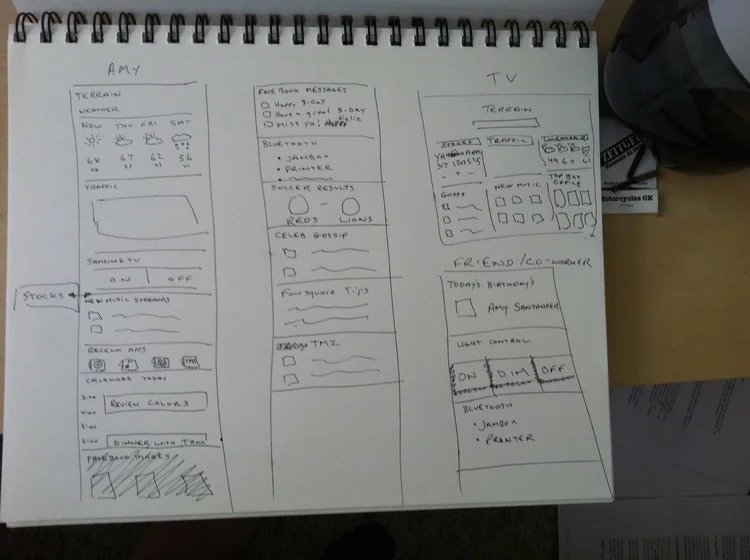 AMY
TERRAIN
WEATHER
NOW THU FRI SAT
68 67 62 56
TRAFFIC
SAMSUNG TV
ON OFF
STOCKS
NEW MUSIC STREAMS
RECENT APPS
CALENDAR TODAY
REVIEW COLORS
DINNER WITH TOM
FACEBOOK IMAGES
FACEBOOK MESSAGES
Happy B-day
Have a great B-DAY
Miss ya! Feliz
BLUETOOTH
• JAMBOX
• PRINTER
SOCCER RESULTS
REDS - LIONS
CELEB GOSSIP
FOURSQUARE TIPS
TMZ
TV
TERRAIN
STOCKS TRAFFIC WEATHER
GOSSIP NEW MUSIC TOP BOX
OFFICE
FRIEND/CO-WORKER
TODAY'S BIRTHDAY'S
AMY SANTANDER
LIGHT CONTROL
ON DIM OFF
BLUETOOTH
• JAMBOX
• PRINTER
Motorcycles OK